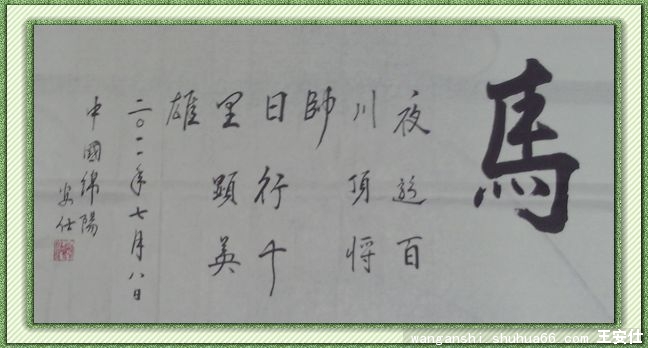 馬
夜遊百
川頂将
師
日行千
里顕英
雄
二〇一一年七月八日
中國綿陽
安仕
wanganshi.shuhua66.com 王安仕